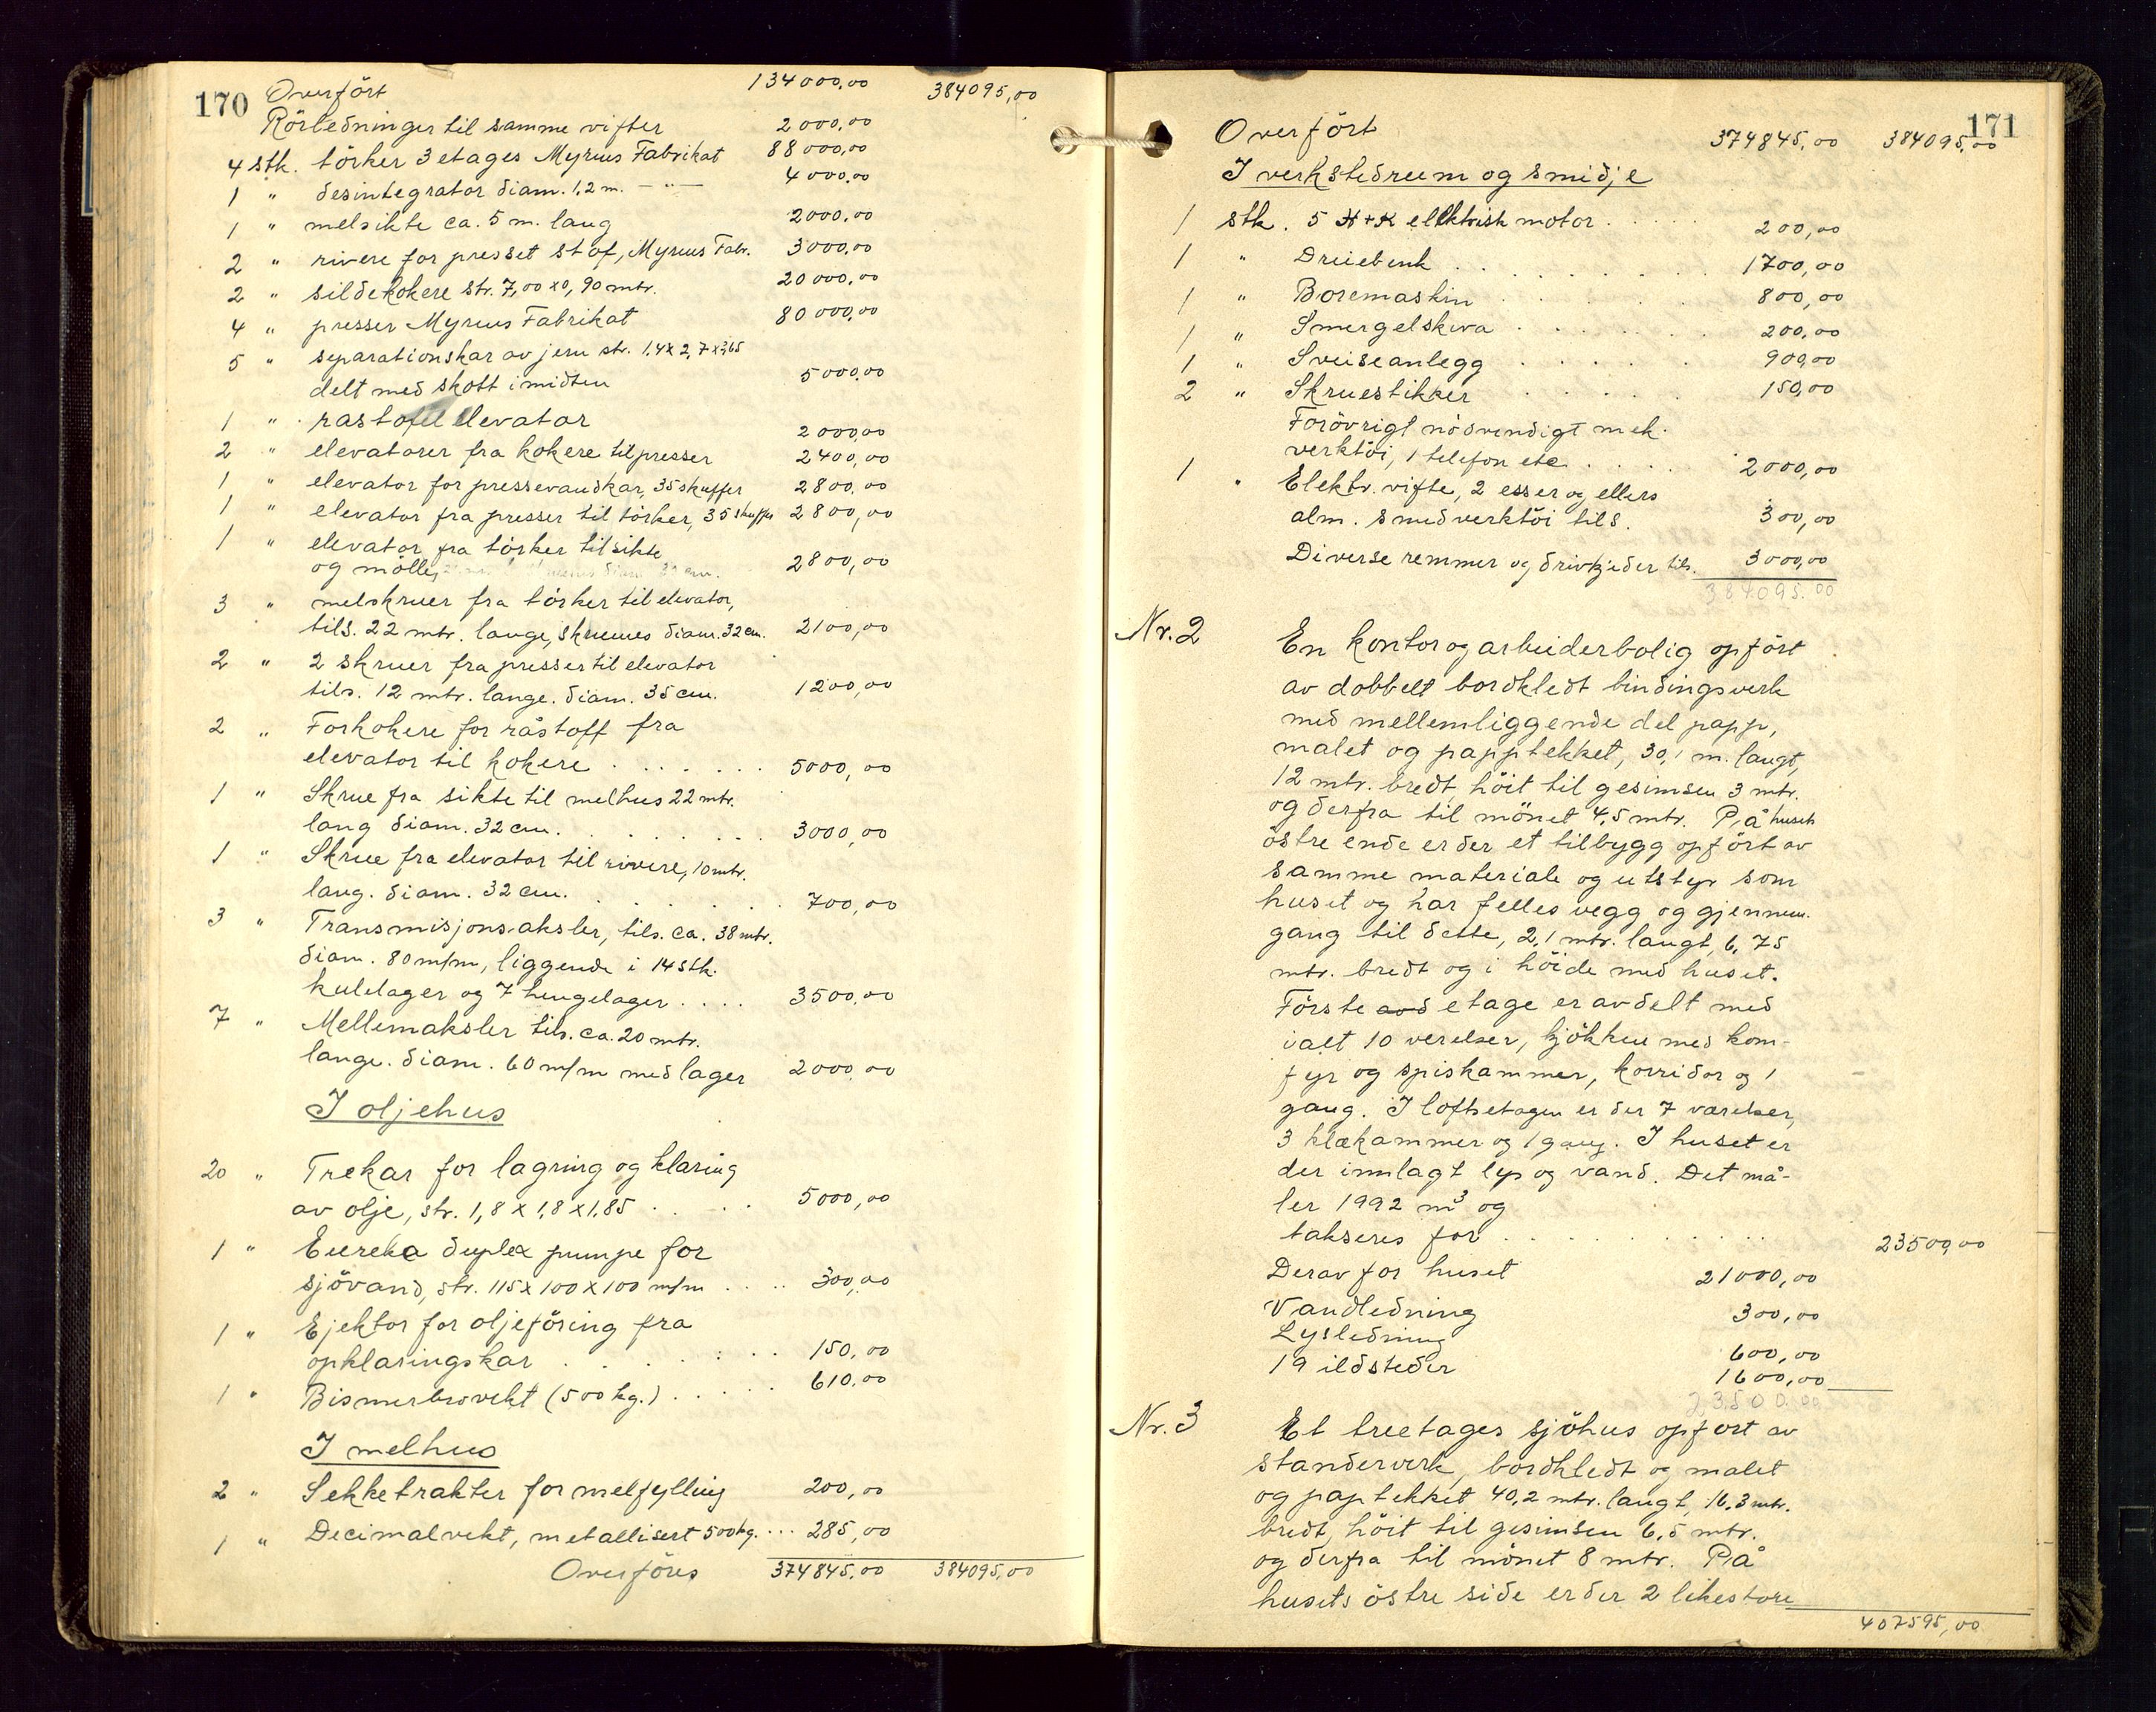 170 Overført 134000,00 384095,00
Rörledninger til samme vifter 2000,00
4 stk. törker 3 etages Myrens Fabrikat 88000,00
1 " desintegrator diam. 1,2 m. — " — 4000,00
1 " melsikte ca. 5 m. lang 2000,00
2 " rivere for presset stof, Myrens Fabr. 3000,00
2 " sildekokere str. 7,00 x 0,90 mtr. 20000,00
4 " presser Myrens Fabrikat 80000,00
5 " separationskar av jern str. 1,4 x 2,7 x 3,65
delt med skott i midten 5000,00
1 " rastoffelevator 2000,00
2 " elevatorer fra kokere til presser 2400,00
1 " elevator for pressevandkar, 35 skuffer 2800,00
1 " elevator fra presser til törker, 35 skuffer 2800,00
1 " elevator fra törker til sikte
og mölle, 2800,00
3 " melskruer fra törker til elevator,
tils. 22 mtr. lange, skruenes diam. 32 cm. 2100,00
2 " 2 skruer fra presser til elevator
tils. 12 mtr. lange. diam. 35 cm. 1200,00
2 " Forkokere for råstoff fra
elevator til kokere . . . . . . 5000,00
1 " Skrue fra sikte til melhus 22 mtr.
lang diam. 32 cm. . . . . . . . 3000,00
1 " Skrue fra elevator til rivere, 10 mtr.
lang. diam. 32 cm. . . . . . . 700,00
3 " Transmisjons-aksler, tils. ca. 38 mtr.
diam. 80 m/m, liggende i 14 stk.
kulelager og 7 hengelager . . . . 3500,00
7 " Mellemaksler tils. ca. 20 mtr.
lange. diam. 60 m/m med lager 2000,00
I oljehus
20 " Trekar for lagring og klaring
av olje, str. 1,8 x 1,8 x 1,85 . . . . 5000,00
1 " Eureka duplex pumpe for
sjövand, str. 115 x 100 x 100 m/m . . . . 300,00
1 " Ejektor for oljeföring fra
opklaringskar . . . . . . . 150,00
1 " Bismerbrovekt (500 kg.) . . . . . 610,00
I melhus
2 " Sekketrakter for melfylling 200,00
1 " Decimalvekt, metallisert 500 kg. . . . 285,00
Overföres 374845,00 384095,00
171
Overfört 374845,00 384095,00
I verkstedrum og smidje
1 stk. 5 H+K elektrisk motor . . . . . 200,00
1 " Dreiebenk . . . . . . . . . 1700,00
1 " Boremaskin . . . . . . 800,00
1 " Smergelskiva . . . . . . 200,00
1 " Sveiseanlegg . . . . . 900,00
2 " Skruestikker . . . . . 150,00
Forövrigt nödvendigt mek.
verktöi, 1 telefon etc. . . . . 2000,00
1 " Elektr. vifte, 2 esser og ellers
alm. smedverktöi tils. 300,00
Diverse remmer og drivkjeder tils. 3000,00
384095.00
Nr. 2 En kontor og arbeiderbolig opfört
av dobbelt bordkledt bindingsverk
med mellemliggende del papp,
malet og papptekket, 30,1 m. langt,
12 mtr. bredt, höit til gesimsen 3 mtr.
og derfra til mönet 4,5 mtr. På husets
östre ende er der et tilbygg opfört av
samme materiale og utstyr som
huset og har felles vegg og gjennem-
gang til dette, 2,1 mtr. langt, 6,75
mtr. bredt og i höide med huset.
Förste avd etage er avdelt med
ialt 10 verelser, kjökken med kom-
fyr og spiskammer, korridor og 1
gang. I loftsetagen er der 7 værelser,
3 klækammer og 1 gang. I huset er
der innlagt lys og vand. Det må-
ler 1992 m³ og
takseres for . . . . . . . . . . . 23500,00
Derav for huset 21000,00
Vandledning 300,00
Lysledning 600,00
19 ildsteder 1600,00
23,500.00
Nr. 3 Et treetages sjöhus opfört av
standerverk, bordkledt og malet
og paptekket 40,2 mtr. langt, 16,3 mtr.
bredt, höit til gesimsen 6,5 mtr.
og derfra til mönet 8 mtr. På
husets östre side er der 2 likestore
407595,00